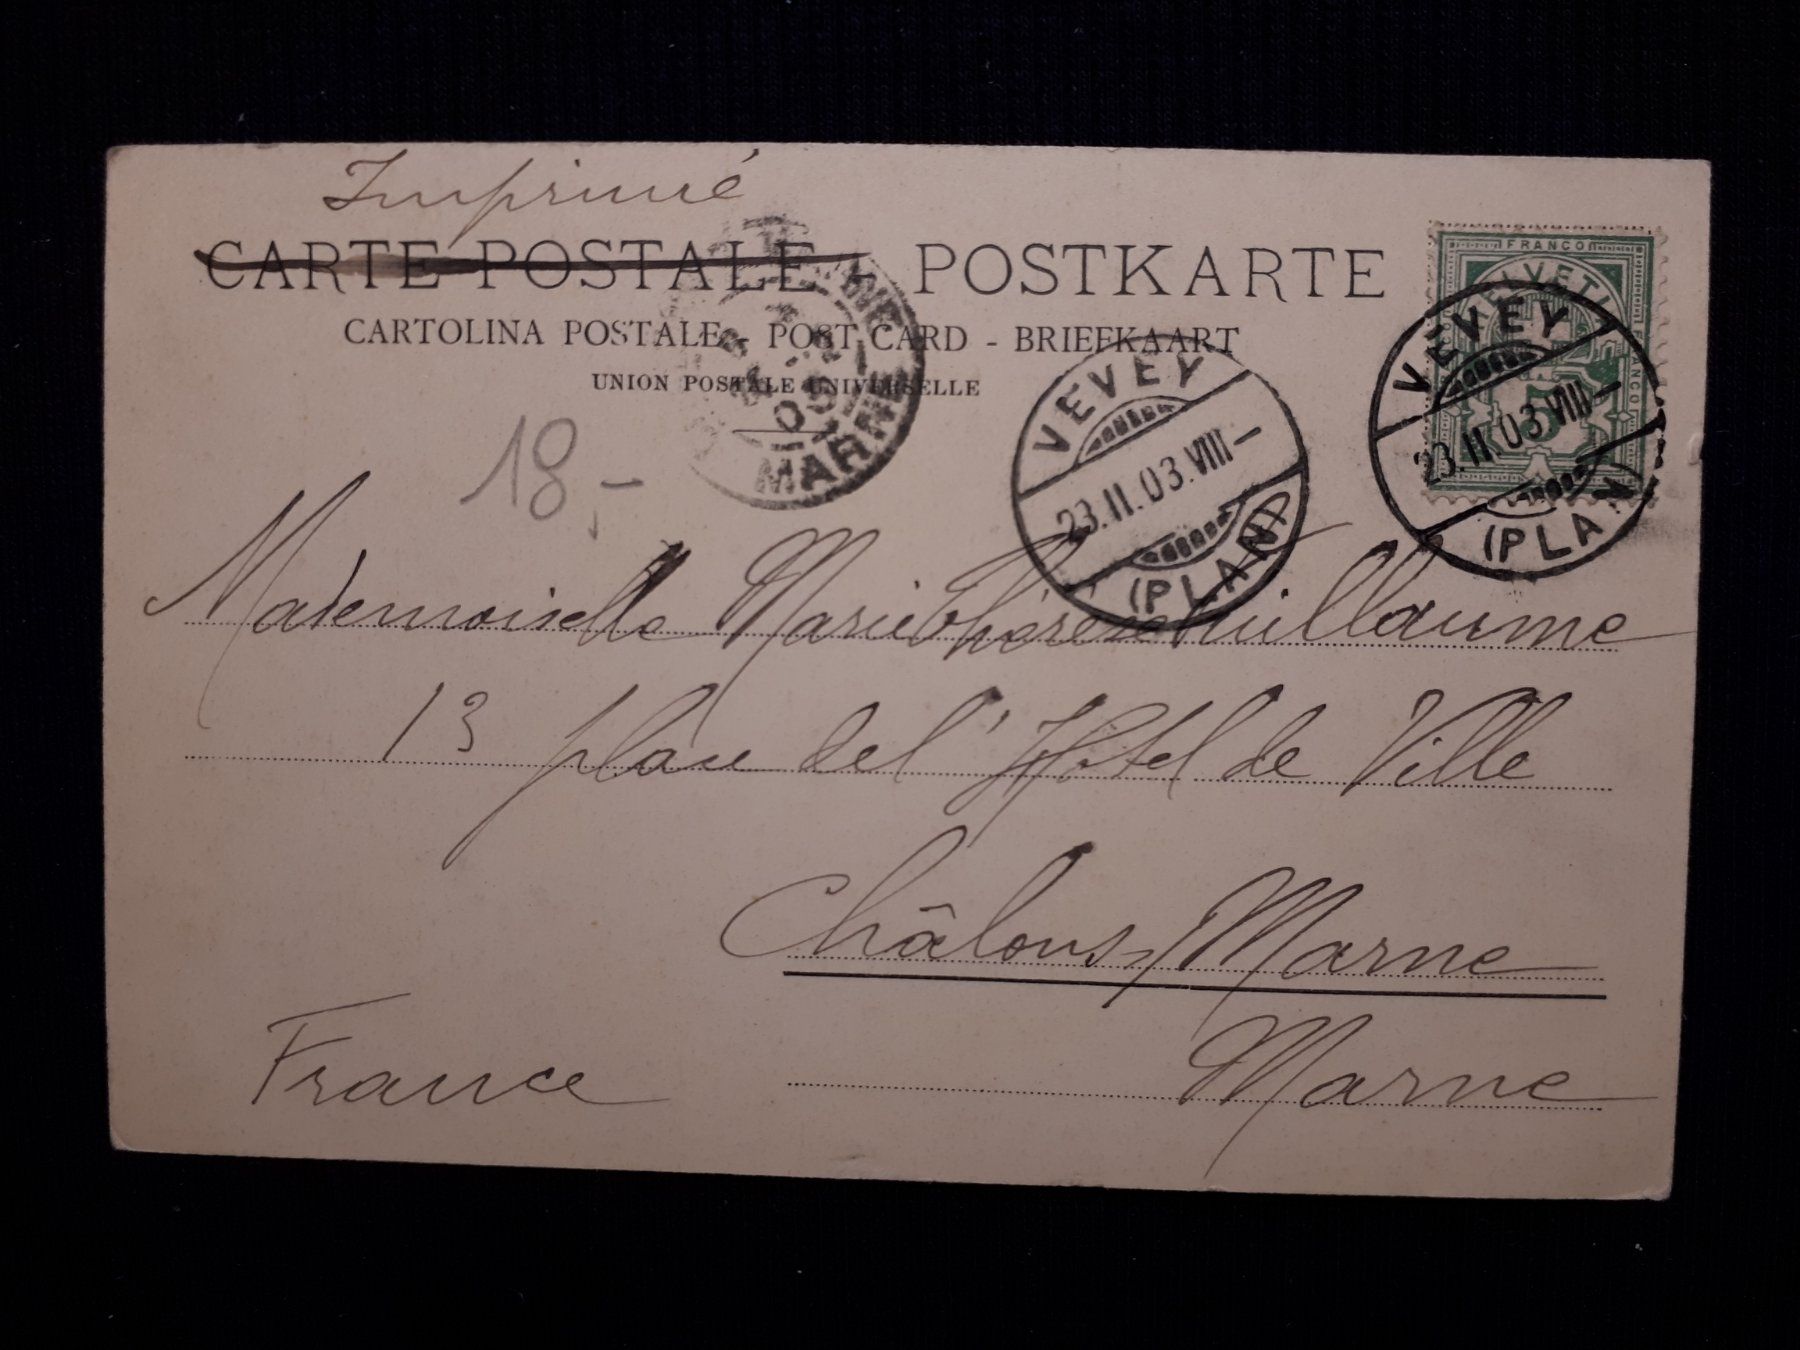 Imprimé
CARTE POSTALE - POSTKARTE
CARTOLINA POSTALE - POST CARD - BRIEFKAART
UNION POSTALE UNIVERSELLE
18,-
MARNE
03
VEVEY
23.II.03.VIII-
(PLAN)
FRANCO
HELVETIA
FRANCO
5
VEVEY
23.II.03.VIII-
(PLAN)
Mademoiselle Marie Thérèse Guillaume
13 place de l'Hôtel de Ville
Châlons s/ Marne
France
Marne